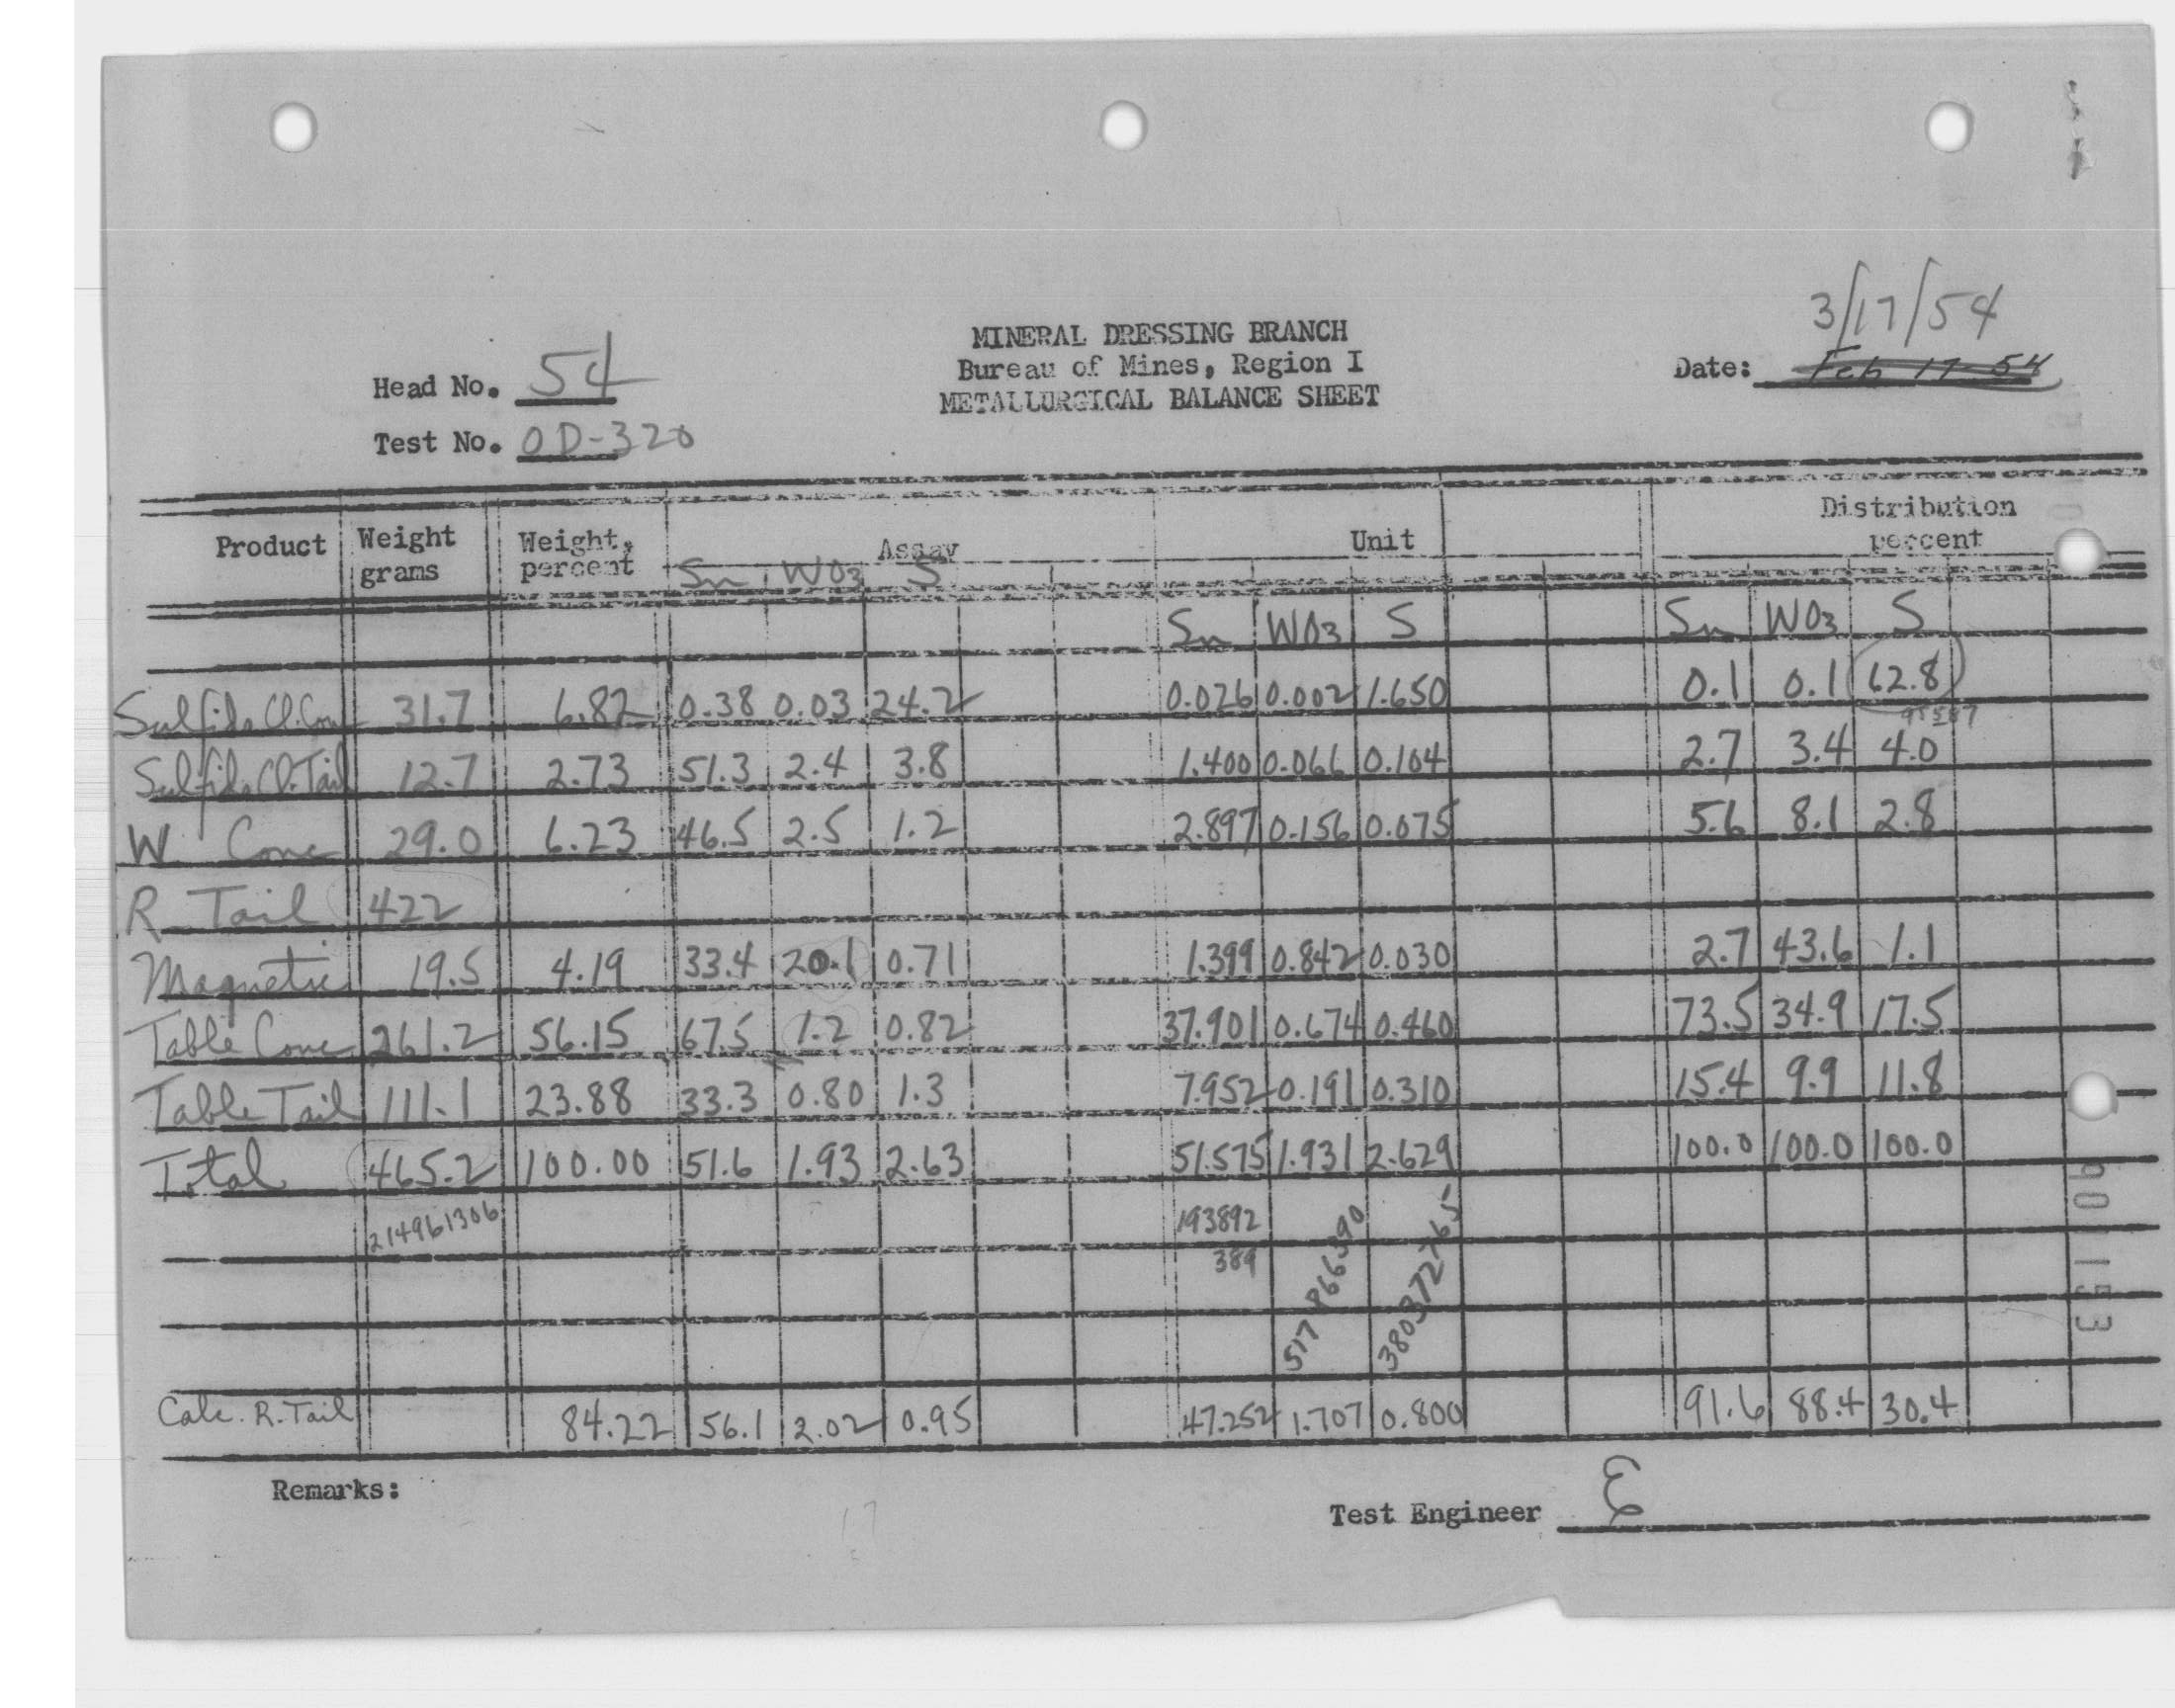 3/17/54
MINERAL DRESSING BRANCH
Bureau of Mines, Region I
METALLURGICAL BALANCE SHEET
Head No. 54
Date: Feb 17 54
Test No. OD-320
Product Weight grams Weight, percent Assay Unit Distribution percent
Sn WO3 S
Sn WO3 S Sn WO3 S
Sulfide Cl. Conc 31.7 6.82 0.38 0.03 24.2 0.026 0.002 1.650 0.1 0.1 62.8
Sulfide Cl. Tail 12.7 2.73 51.3 2.4 3.8 1.400 0.066 0.104 2.7 3.4 4.0
W Conc 29.0 6.23 46.5 2.5 1.2 2.897 0.156 0.075 5.6 8.1 2.8
R Tail 422
Magnetic 19.5 4.19 33.4 20.1 0.71 1.399 0.842 0.030 2.7 43.6 1.1
Table Conc 261.2 56.15 67.5 1.2 0.82 37.901 0.674 0.460 73.5 34.9 17.5
Table Tail 111.1 23.88 33.3 0.80 1.3 7.952 0.191 0.310 15.4 9.9 11.8
Total 465.2 100.00 51.6 1.93 2.63 51.575 1.931 2.629 100.0 100.0 100.0
214961306 193892
389
517866390
380372765
Calc. R. Tail 84.22 56.1 2.02 0.95 47.252 1.707 0.800 91.6 88.4 30.4
Remarks:
Test Engineer E
17